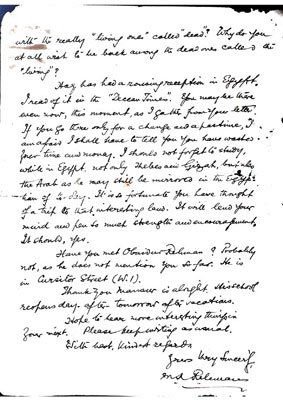 with the really "living one" called "dead"? Why do you
at all wish to be back among the dead ones called the
"living"?
Haz has had a rousing reception in Egypt.
I read of it in the "Deccan Times". You may be there
even now, this moment, as I gather from your letter.
If you go there only for a change and a pastime, I
am afraid I shall have to tell you you have wasted
your time and money. I should not forget to study,
while in Egypt not only Thebes and Gizeh, but also
the Arab as he may still be mirrored in the Egyp-
tian of to-day. It is so fortunate you have thought
of a trip to that interesting land. It will lend your
mind and pen so much strength and encouragement.
It should, yes.
Have you met Obaidur Rehman? Probably
not, as he does not mention you so far. He is
in Cursitor Street (W.1).
Thank you Manavar is alright. His school
reopens day after tomorrow after vacations.
Hope to hear more interesting things in
your next. Please keep writing as usual.
With best, kindest regards
Yours Very Sincerely